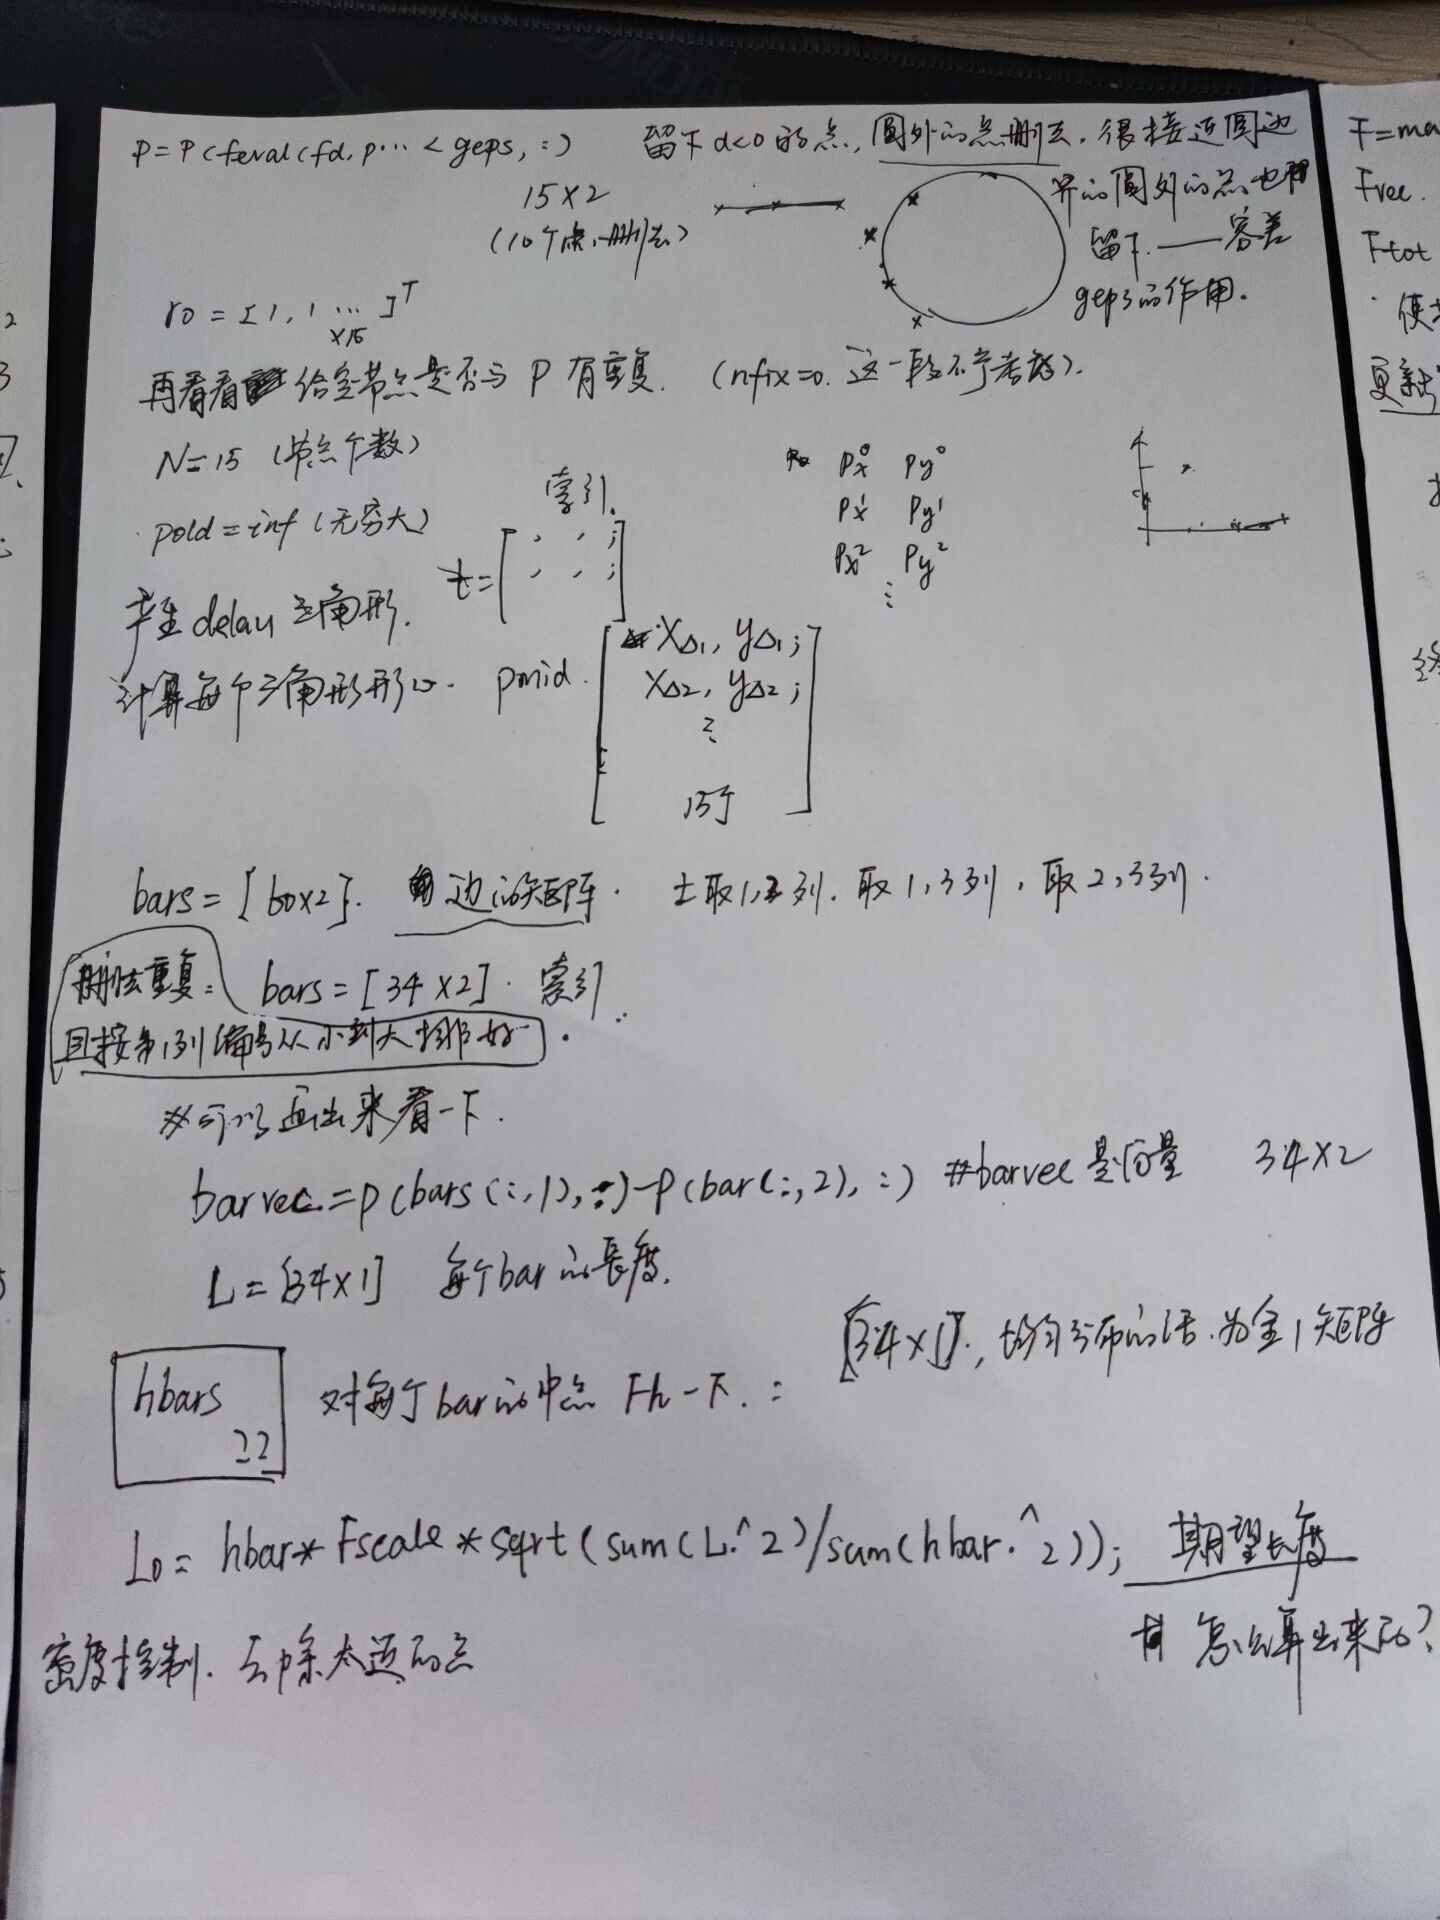 P=P(feval(fd,p… < geps, :)
留下d<0的点,圆外的点删去,很接近圆边
界的圆外的点也
留下.——容差
geps的作用.
15×2
(10个点删去)
r0=[1,1…]ᵀ
×15
再看看给定节点是否与P有重复. (nfix=0.这一段不予考虑).
N=15 (节点个数)
pold=inf(无穷大)
索引.
t=[ , , ;
, , ; ]
Px⁰ Py⁰
Px¹ Py¹
Px² Py²
⋮
产生delau三角形.
计算每个三角形形心. pmid.
[ X△1, y△1;
X△2, y△2;
⋮
]
bars=[60×2]. 边的矩阵. t取1,2列.取1,3列,取2,3列.
删去重复: bars=[34×2].索引.
且按第1列编号从小到大排好.
※可以画出来看一下.
barvec=p(bars(:,1),:)-P(bar(:,2),:) #barvec是向量 34×2
L=[34×1] 每个bar的长度.
[34×1],均匀分布的话.为全1矩阵
hbars
??
对每个bar的中点Fh一下.:
L0=hbar*Fscale*sqrt(sum(L.^2)/sum(hbar.^2)); 期望长度
怎么算出来的?
密度控制.去除太近的点
2
3
F=ma
Fvec.
Ftot
使
更新